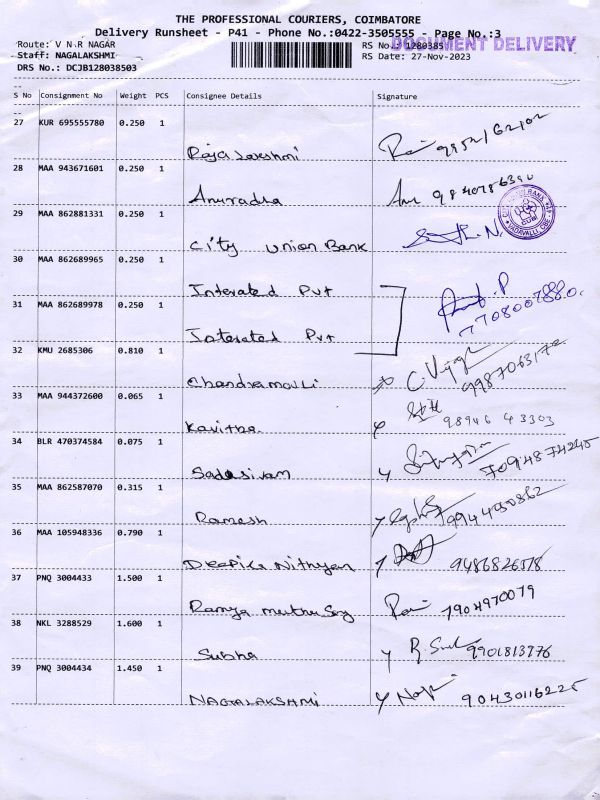 THE PROFESSIONAL COURIERS, COIMBATORE
Delivery Runsheet - P41 - Phone No.:0422-3505555 - Page No.:3
Route: V N R NAGAR RS No.: 1280385
DOCUMENT DELIVERY
Staff: NAGALAKSHMI RS Date: 27-Nov-2023
DRS No.: DCJB128038503
S No Consignment No Weight PCS Consignee Details Signature
27 KUR 695555780 0.250 1
Rajalakshmi
28 MAA 943671601 0.250 1
Anuradha
29 MAA 862881331 0.250 1
City Union Bank
30 MAA 862689965 0.250 1
Interated Pvt
7708007880
31 MAA 862689978 0.250 1
Interated Pvt
32 KMU 2685306 0.810 1
Chandramouli 9987063172
33 MAA 944372600 0.065 1
Kavitha 98946 43303
34 BLR 470374584 0.075 1
Sadasivam
35 MAA 862587070 0.315 1
Ramesh 9944050862
36 MAA 105948336 0.790 1
Deepika Nithyan 9486826578
37 PNQ 3004433 1.500 1
Ramya 7904970079
38 NKL 3288529 1.600 1
Subha 9901813776
39 PNQ 3004434 1.450 1
NAGALAKSHMI 90430116225